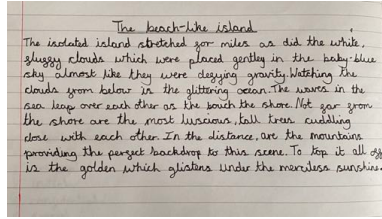 The beach-like island
The isolated island stretched for miles as did the white,
fluffy clouds which were placed gentley in the baby-blue
sky almost like they were defying gravity. Watching the
clouds from below is the glittering ocean. The waves in the
sea leap over each other as the the shore. Not far from
the shore are the most luscious, tall trees cuddling
close with each other. In the distance, are the mountains
providing the perfect backdrop to this scene. To top it all off
is the golden which glistens under the merciless sunshine.